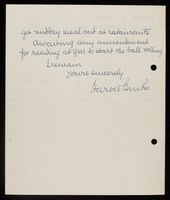 get military meal out at restaurants
Awaiting any amendment
for reading at gm to start the ball rolling
I remain
Yours sincerely
Harold